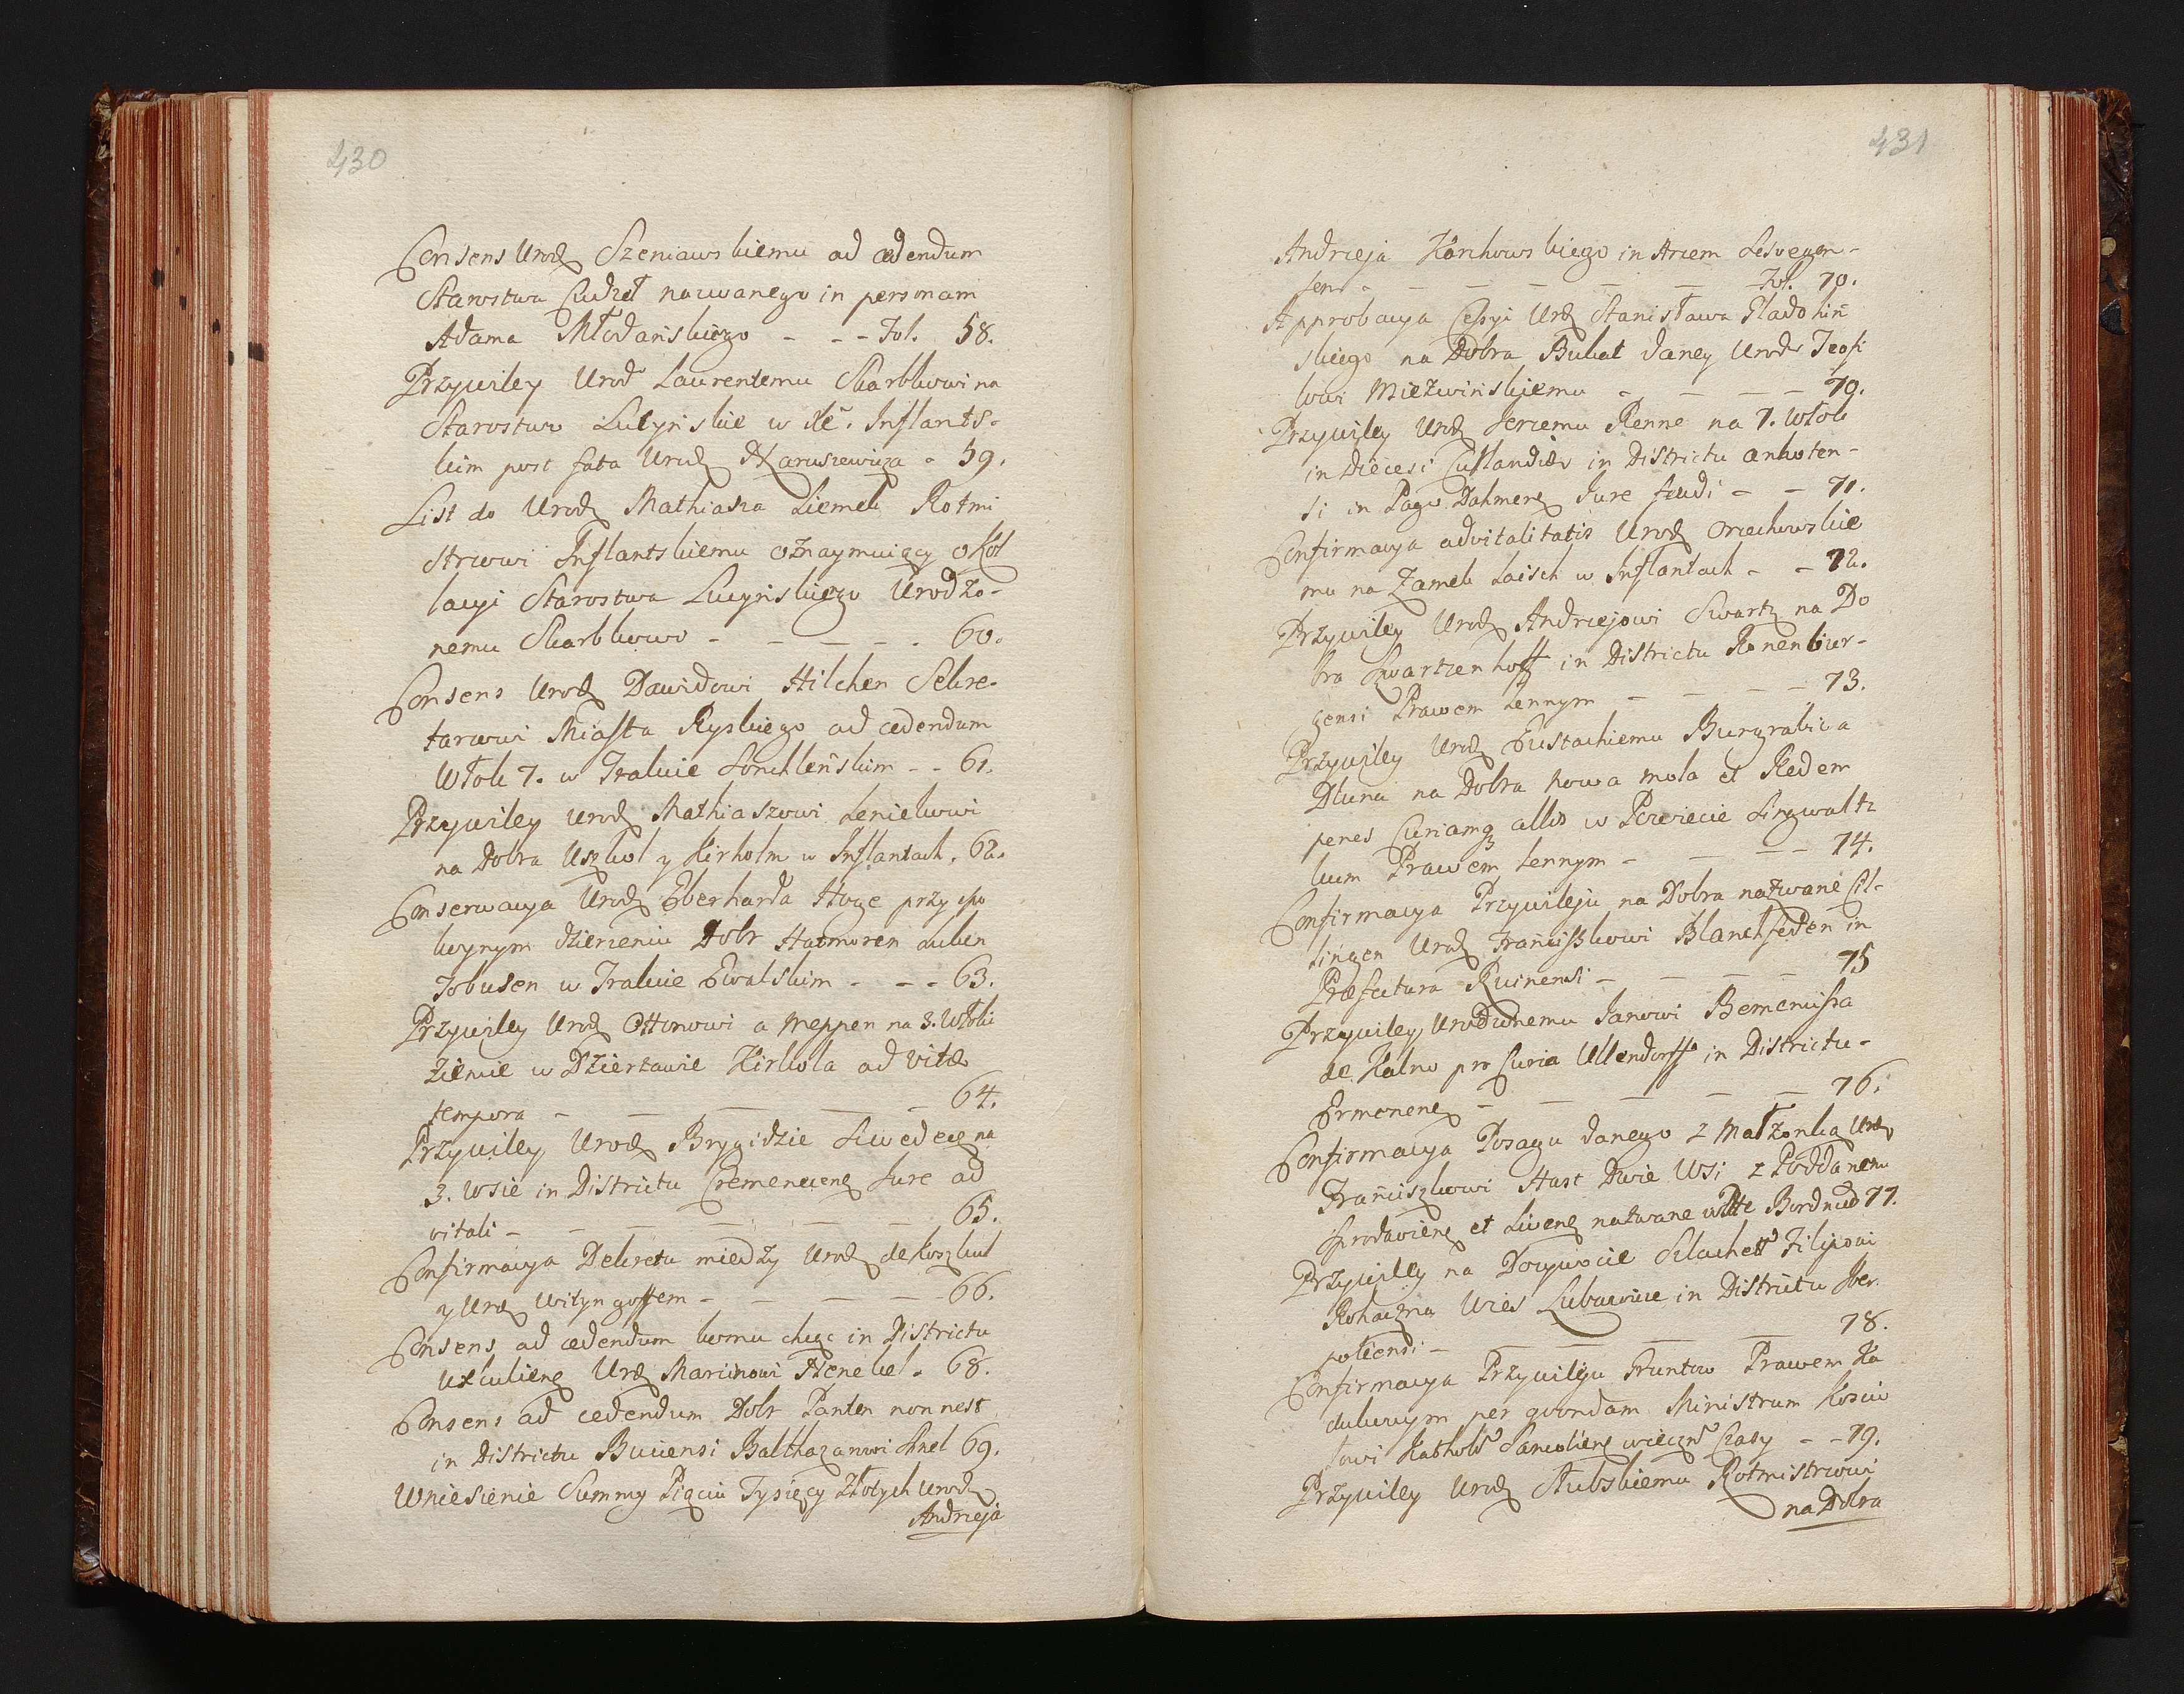 430
Consens Urodz Szeniawskiemu ad cedendum
Starostwa Cudzet nazwanego in personam
Adama Młodanskiego - - - Fol. 58.
Przywiley Urod Laurentemu Skarbkowi na
Starostwo Lucynskie w Xie. Inflants-
kim post fata Urodz Naruszewicza - 59.
List do Urodz Mathiasza Liemek Rotmi
strzowi Inflantskiemu oznaymuiący o Kol
lacyi Starostwa Lucynskiego Urodzo-
nemu Skarbkowi - - - - - 60.
Consens Urodz Dawidowi Hilchen Sekre-
tarzowi Miasta Ryskiego ad cedendum
Włok 7. w Trakcie Sonchlenskim - - 61.
Przywiley Urodz Mathiaszowi Leniekowi
na Dobra Uszkol y Kirholm w Inflantach. 62.
Conserwacya Urodz Eberharda Hoge przy spo
koynym dzierzeniu Dobr Hatmoren Luben
Tobusen w Trakcie Ewalskim - - - 63.
Przywiley Urodz Ottonowi a Meppen na 3. Włoki
Ziemie w Dzierzawie Kirkola ad vitae
tempora - - - - - 64.
Przywiley Urodz Brygidzie Szwedece na
3. Wsie in Districtu Cremenecens Jure ad
vitali - - - - - 65.
Confirmacya Dekretu miedzy Urodz de Koszkul
y Urodz Wityngoffem - - - - 66.
Consens ad cedendum komu chcąc in Districtu
Uxkuliens Urdz Marcinowi Henekel. 68.
Consens ad cedendum Dobr Panten non nest
in Districtu Buciensi Balthazarowi Snel 69.
Wniesienie Summy Pięciu Tysięcy Złotych Urodz
Andrzeja
431
Andrzeja Korchowskiego in Arcem Lesvegen-
sens - - - - - - Fol. 70.
Approbacya Cessyi Urdz Stanisława Hladohin
skiego na Dobra Bukat daney Urodz Teofi
lowi Miezwinskiemu - - - - 70.
Przywiley Urdz Jerzemu Renne na 7. Włok
in Diecesi Curlandiae in Districtu anhoten-
si in Pago Dahmerz Jure feudi - - 71.
Confirmacya advitalitatis Urodz Orzechowskie
mu na Zamek Laisch w Inflantach - - 72.
Przywiley Urodz Andrzejowi Swartz na Do
bra Szwartzenhoff in Districtu Ronenbur-
gensi Prawem Lennym - - - - 73.
Przywiley Urodz Eustachiemu Burgrabi a
Dkuna na Dobra nowa mola et Redem
penes Curiamq allos w Powiecie Lingwaltz
kum Prawem Lennym - - - - 74.
Confirmacya Przywileju na Dobra nazwane Cil-
singen Urodz Franciszkowi Blanchfeden in
Praefectura Ruinensi - - - - 75
Przywiley Urodzonemu Janowi Bemenissa
de Kalno pro Curia Ullendorff in Districtu-
Ermonens - - - - - 76.
Confirmacya Posagu danego z Małzonką Urdz
Franciszkowi Hast Dwie Wsi z Poddanemi
Sprodawiens et Livens nazwane wlte Bordnied 77.
Przywiley na Dozywocie Szlachett Filipowi
Rohaczma Wies Lubaewice in Districtu Ner-
potiensi - - - 78.
Confirmacya Przywileju Gruntow Prawem Ka
dukowym per quondam Ministrum Koscio
łowi Katholk Sancoliens wieczne Czasy - - 79.
Przywiley Urodz Stubskiemu Rotmistrzowi
na Dobra